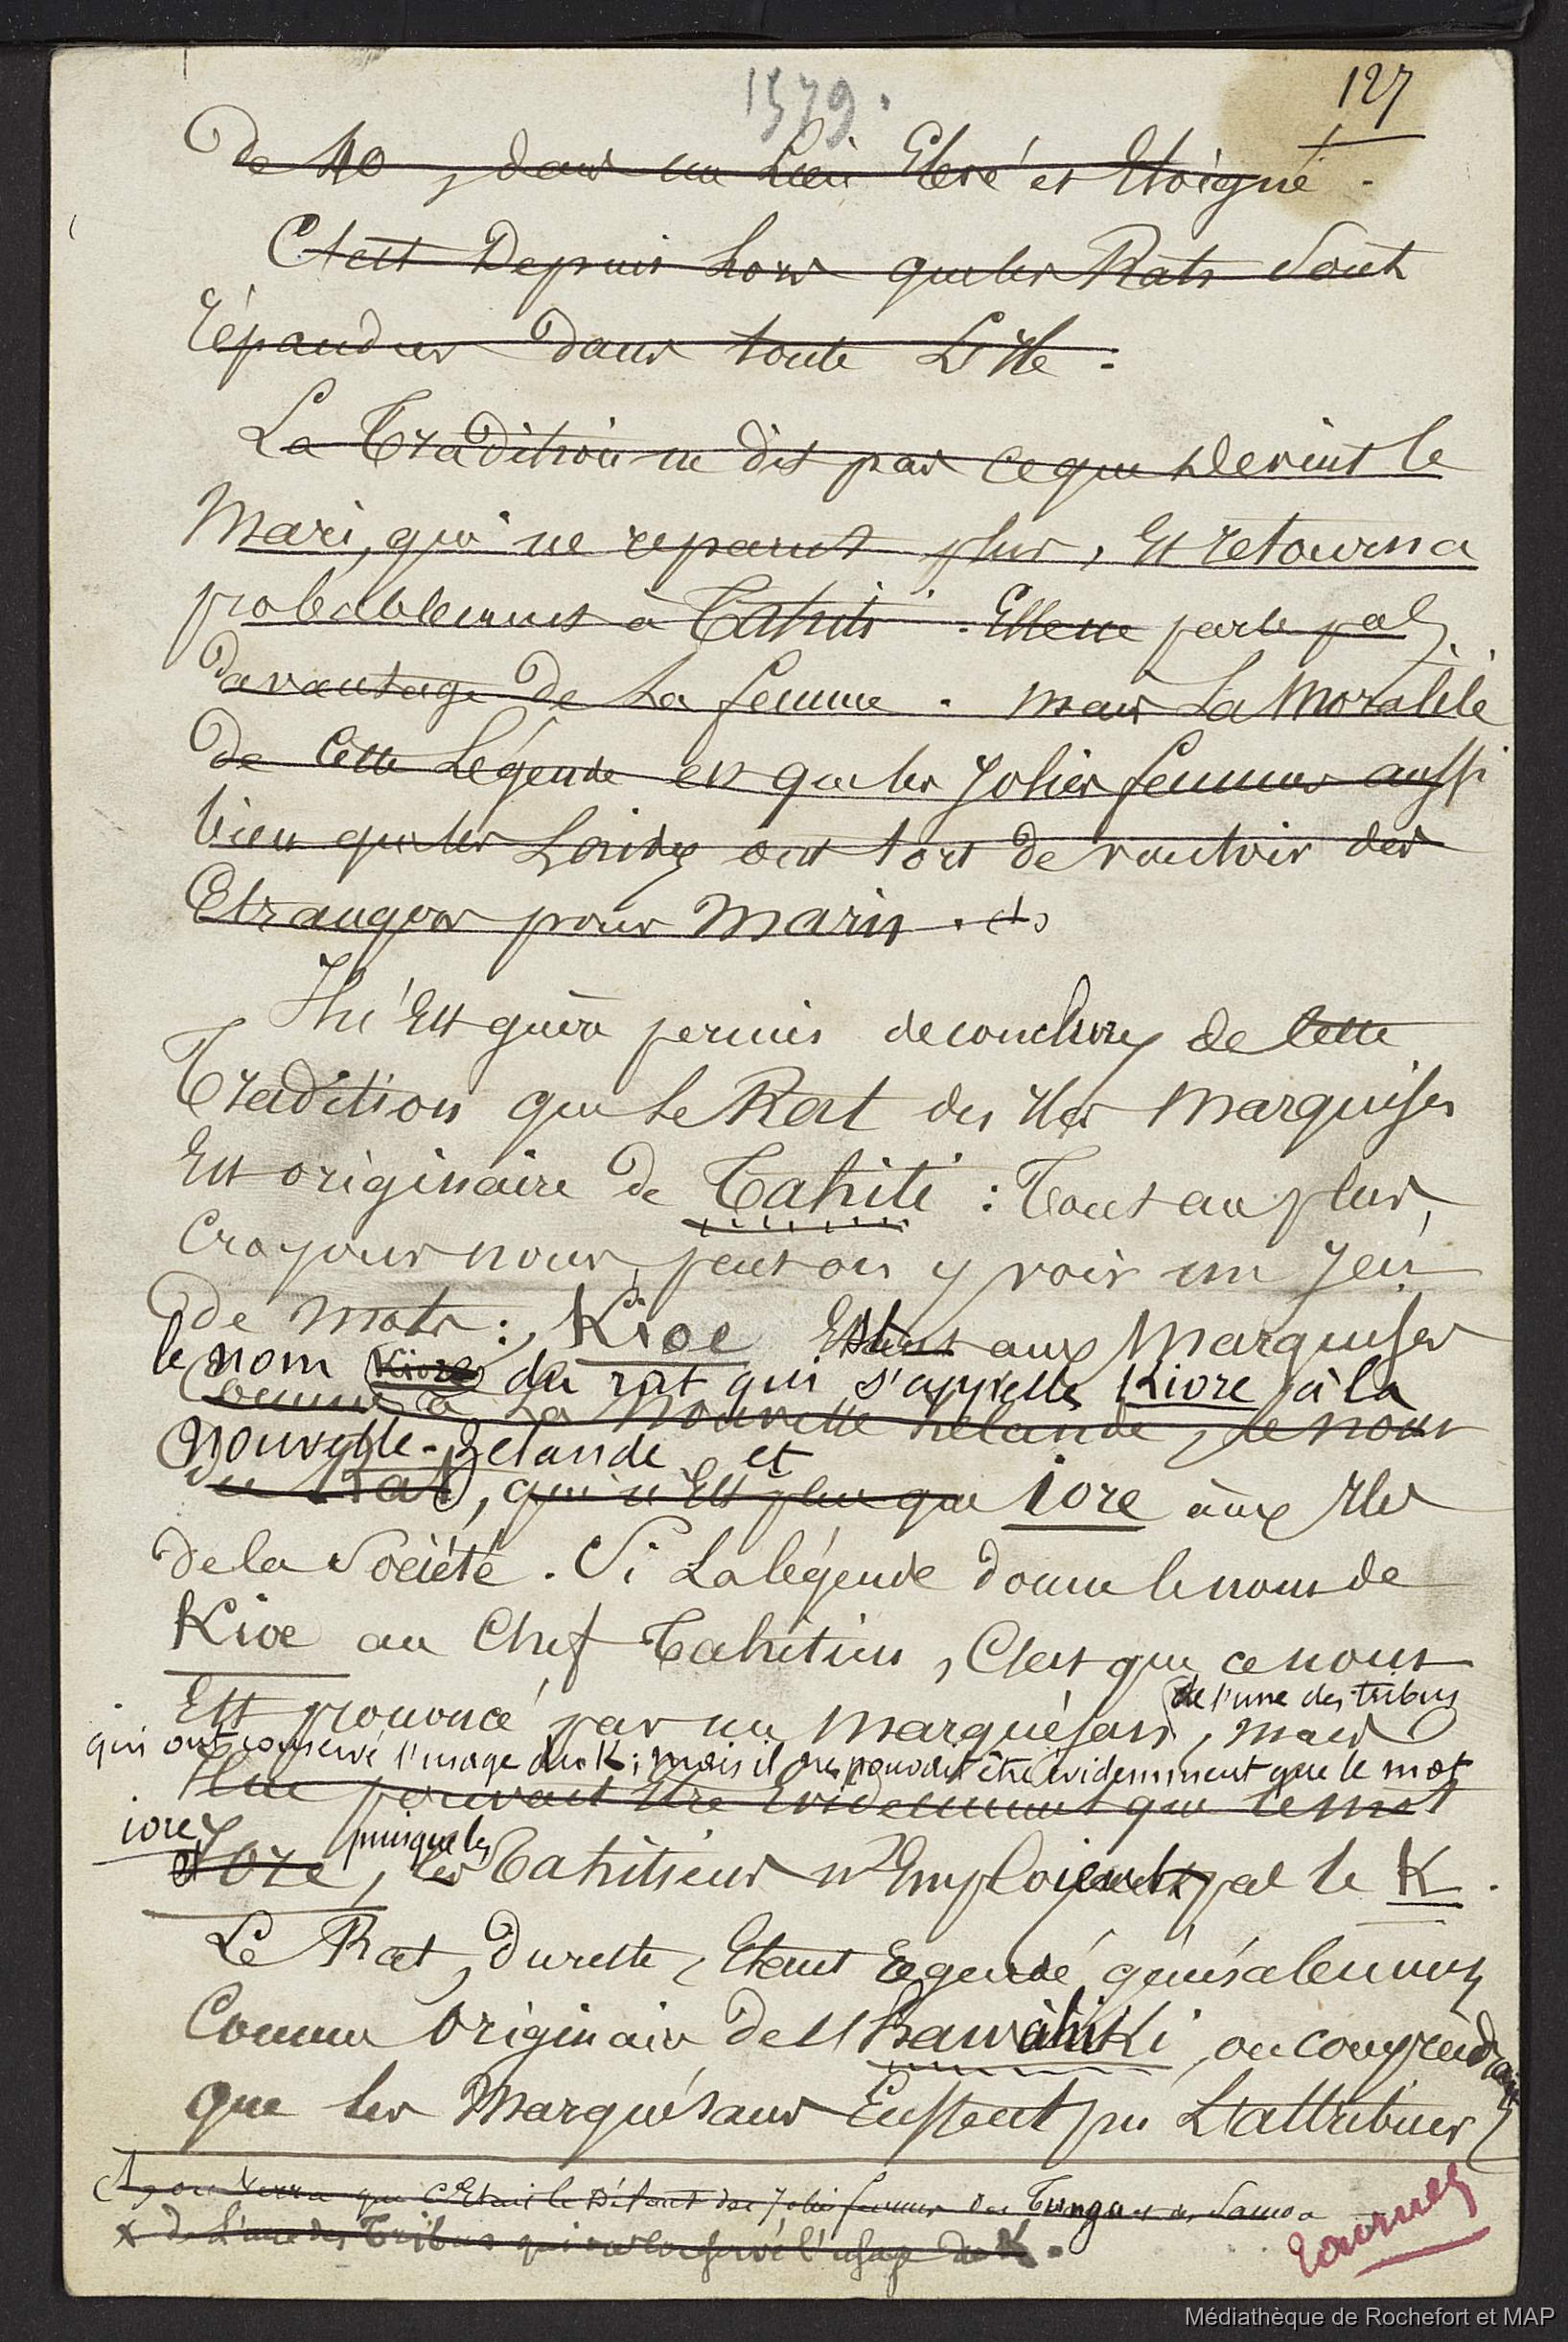 1579.
127
De 40, dans un lieu Elevé et Eloigné.
C'est Depuis lors que les Rats Sont
répandus Dans toute L'île.
La Tradition ne dit pas ce que Devint le
Mari, qui ne reparut plus, Et retourna
probablement à Tahiti. Elle ne parle pas
Davantage De La femme. mais La Moralité
De Cette Légende est que les Jolies femmes aussi
bien que les Laides ont tort De vouloir des
Etrangers pour Maris. (1)
Il n'Est guère permis de conclure de Cette
Tradition que Le Rat des Iles Marquises
Est originaire De Tahiti : Tout au plus,
Croyons nous, peut on y voir un Jeu
De Mots : Kioe Etant aux Marquises
le nom Kiore du rat qui s'appelle Kiore à la
Comme à La Nouvelle Zélande, le nom
Nouvelle-Zélande et
du Rat, qui n'Est plus que iore aux Iles
De la Société. Si La légende donne le nom de
Kioe au Chef Tahitien, C'est que ce nom
Est prononcé par un Marquésan, mais
de l'une des tribus
qui ont conservé l'usage du K; mais il ne pouvait être évidemment que le mot
Il ne pouvait Etre Evidemment que le mot
iore, puisque les
Iore, les Tahitiens n'Emploient pas le K.
Le Rat, Du reste, Etant regardé généralement
Comme Originaire De l'Hawahiki, on comprendrait
que les Marquésans Eussent pu L'attribuer
(1) on verra que C'Etait le Défaut des Jolies femmes des Tunga et des Samoa
x De L'une des Tribus qui ont conservé l'usage du K.
tournez
Médiathèque de Rochefort et MAP